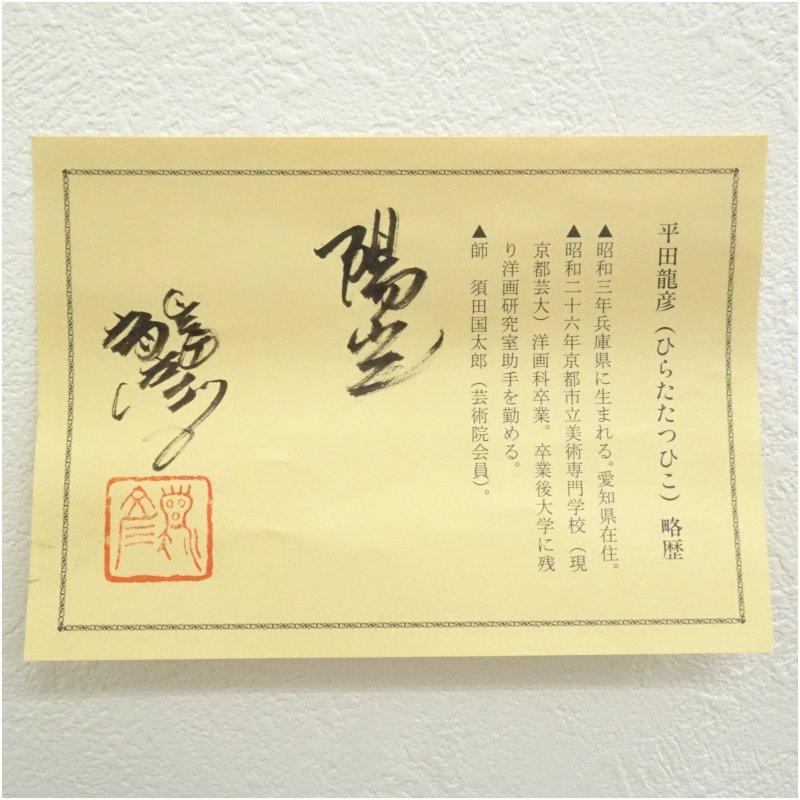 平田龍彦(ひらたたつひこ) 略歴
▲昭和三年兵庫県に生まれる。愛知県在住。
▲昭和二十六年京都市立美術専門学校(現
京都芸大)洋画科卒業。卒業後大学に残
り洋画研究室助手を勤める。
▲師 須田国太郎(芸術院会員)。
陽光
龍彦